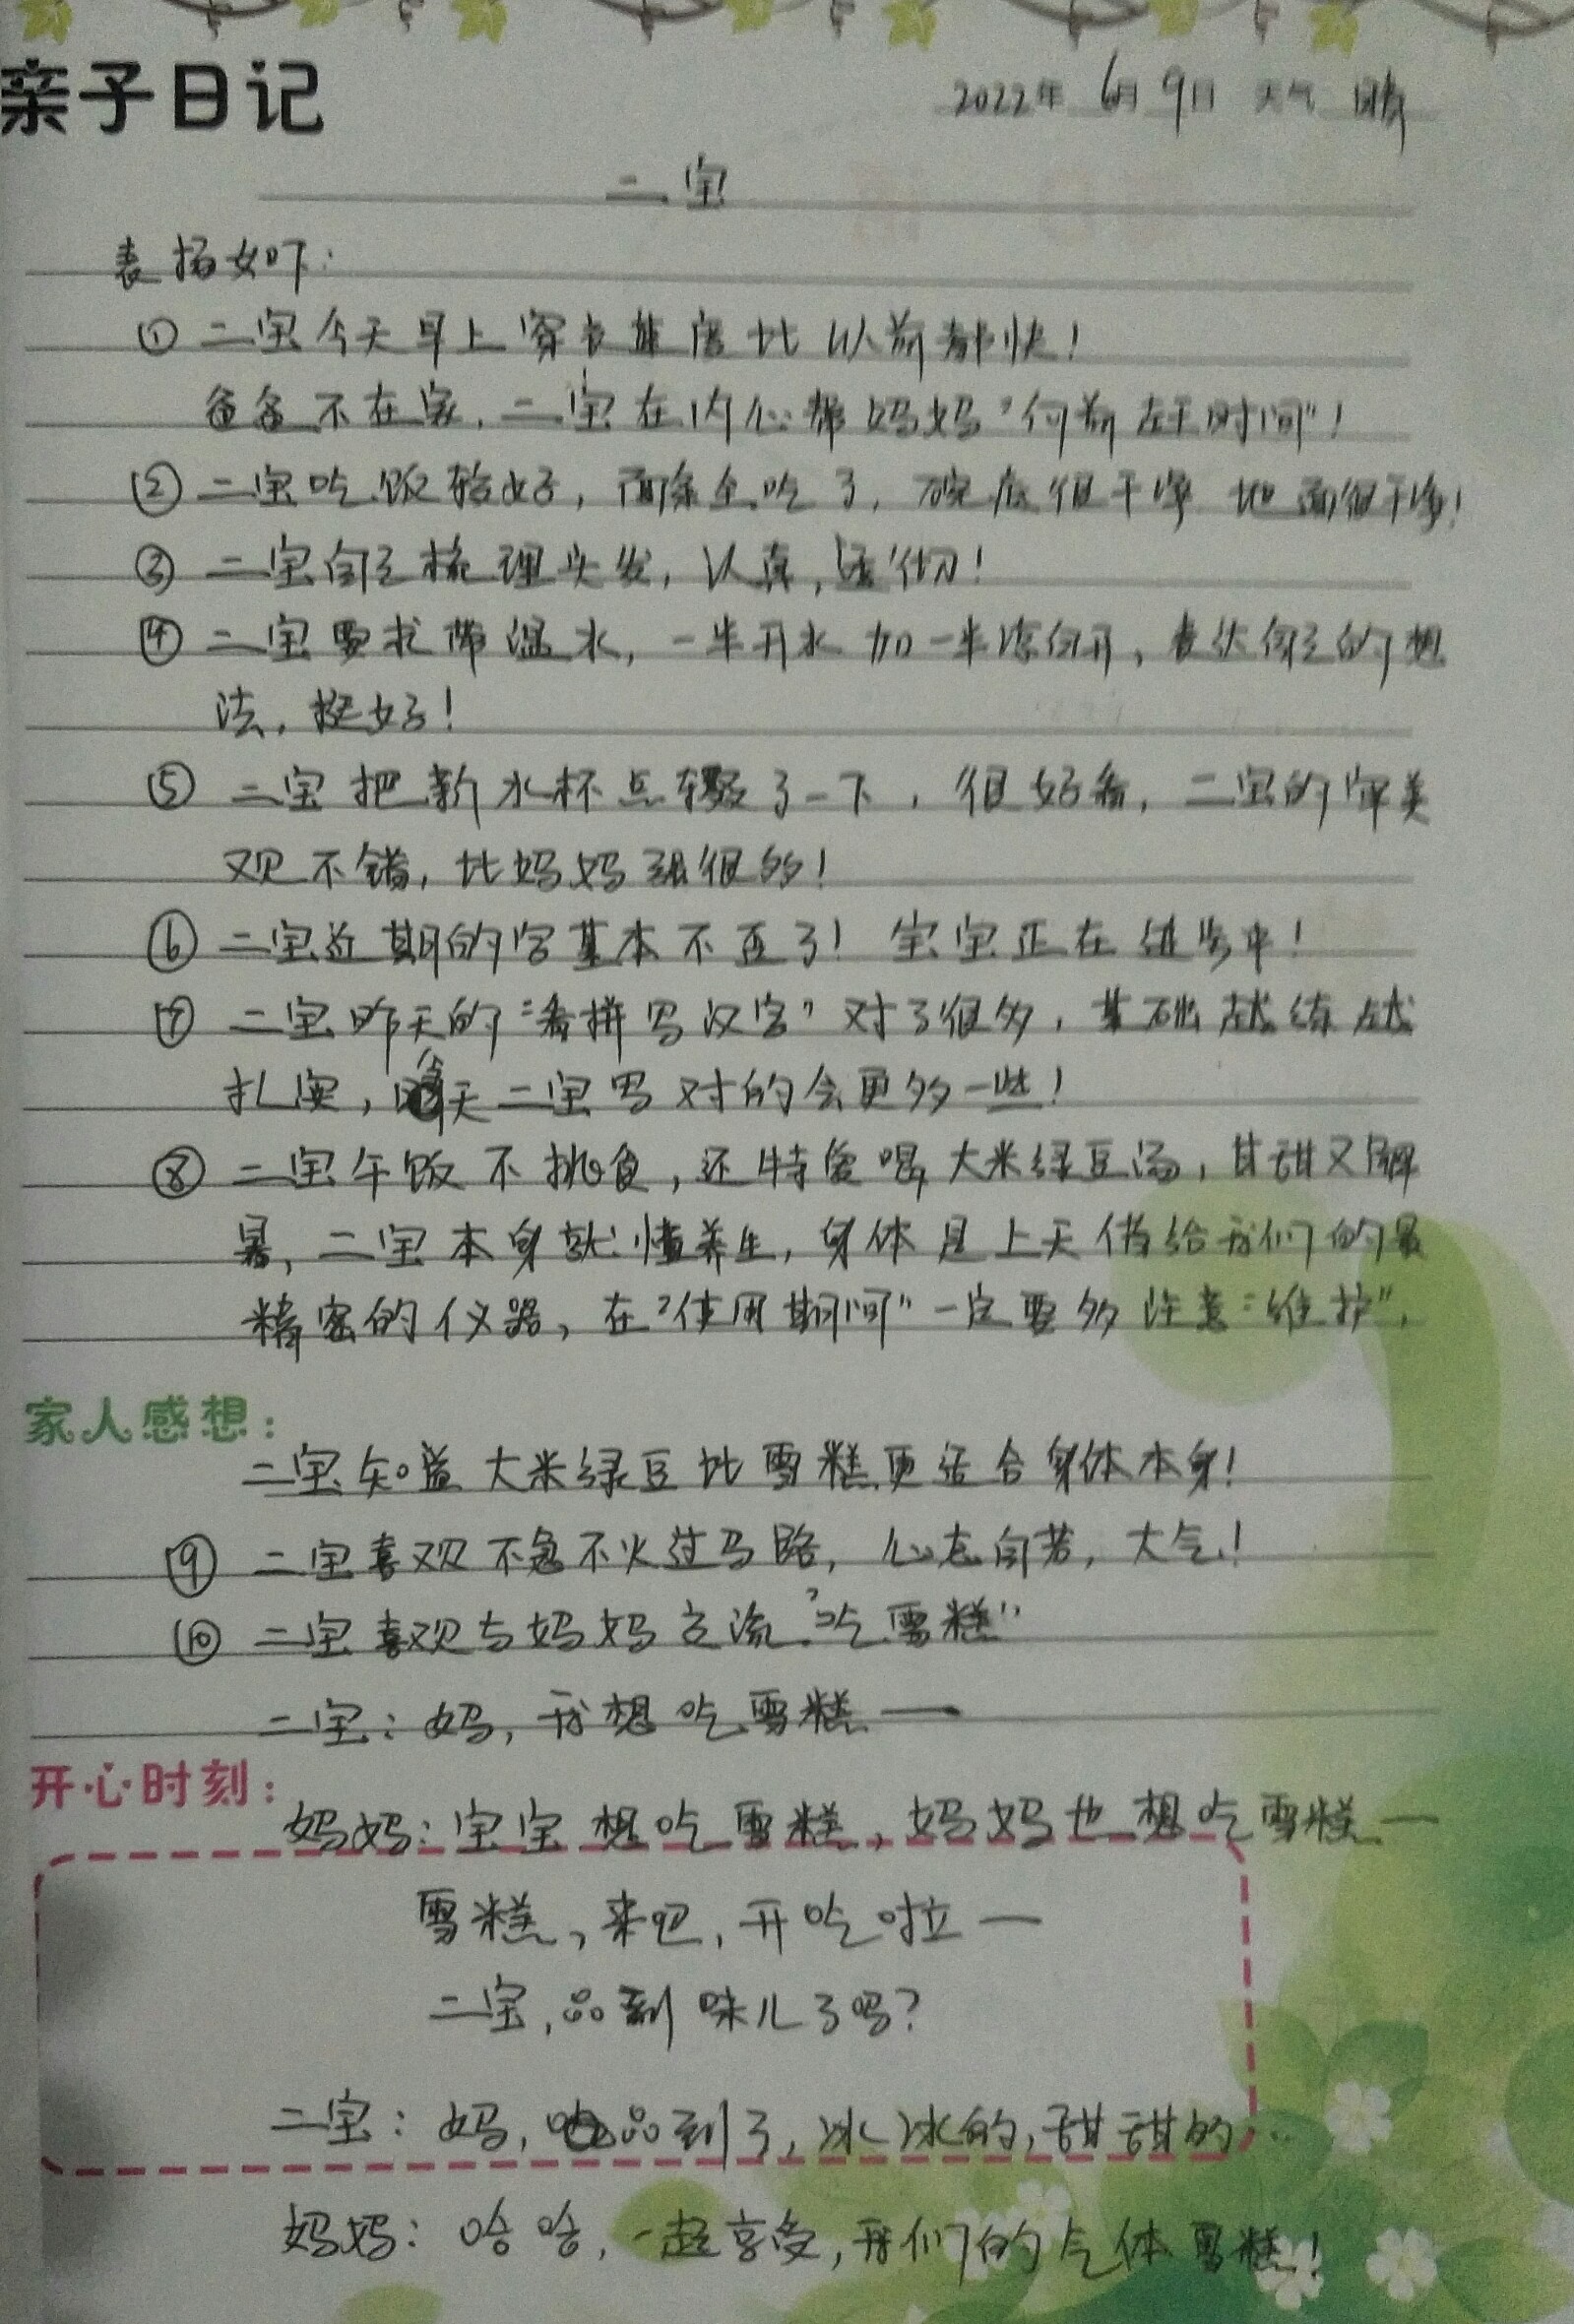 亲子日记
2022年 6月 9日 天气 晴
二宝
表扬如下:
① 二宝今天早上穿衣速度比以前都快!
爸爸不在家,二宝在内心帮妈妈"向前赶时间"!
② 二宝吃饭较好,面条全吃了,碗底很干净 地面很干净!
③ 二宝自己梳理头发,认真,适切!
④ 二宝要求带温水,一半开水加一半凉白开,表达自己的想
法,挺好!
⑤ 二宝把新水杯点缀了一下,很好看,二宝的审美
观不错,比妈妈强很多!
⑥ 二宝近期的字基本不歪了! 宝宝正在进步中!
⑦ 二宝昨天的"看拼写汉字"对了很多,基础越练越
扎实,今天二宝写对的会更多一些!
⑧ 二宝午饭不挑食,还特爱喝大米绿豆汤,甘甜又解
暑,二宝本身就懂养生,身体是上天借给我们的最
精密的仪器,在"使用期间"一定要多注意"维护",
家人感想:
二宝知道大米绿豆比雪糕更适合身体本身!
⑨ 二宝喜欢不急不火过马路,心态自若,大气!
⑩ 二宝喜欢与妈妈交流"吃雪糕"
二宝:妈,我想吃雪糕—
开心时刻:
妈妈:宝宝想吃雪糕,妈妈也想吃雪糕—
雪糕,来吧,开吃啦—
二宝,品到味儿了吗?
二宝:妈,品到了,冰冰的,甜甜的...
妈妈:哈哈,一起享受,我们的气体雪糕!